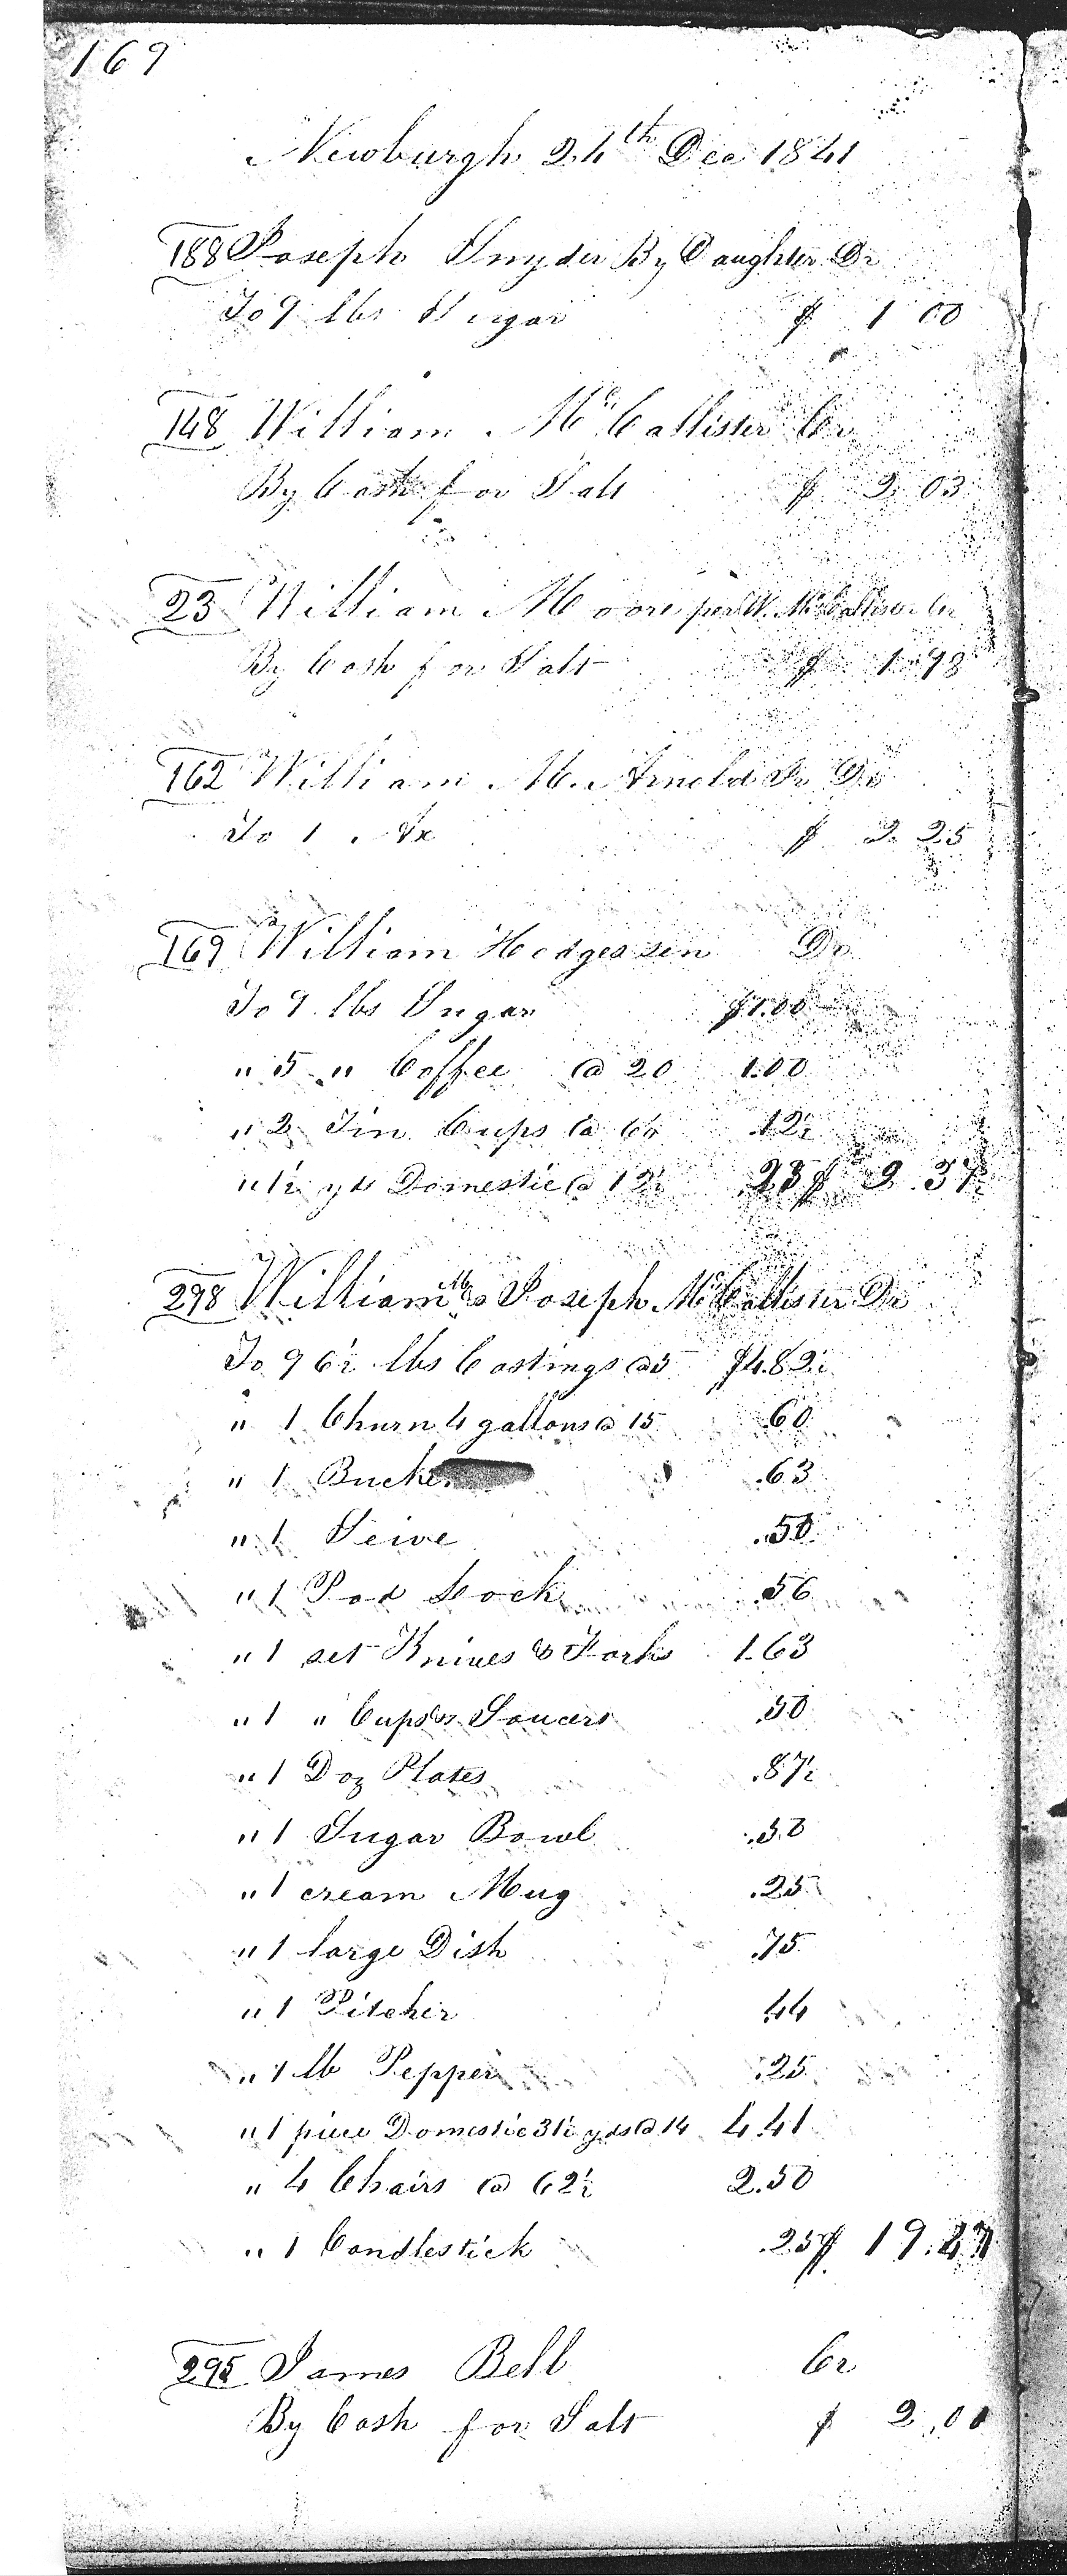 169
Newburgh 24th Dec 1841
188 Joseph Snyder By Daughter Dr
To 9 lbs Sugar $ 1 00
148 William McCallister Cr
By Cash for Salt $ 2 03
23 William Moore per W. McCallister Cr
By Cash for Salt $ 1.98
162 William M. Arnold Sr Dr
To 1 Ax $ 2 25
169 William Hodges sen Dr
To 9 lbs Sugar $1.00
" 5 " Coffee @ 20 1.00
" 2 Tin Cups @ 6¼ .12½
" 1½ yds Domestic @ 12½ .25 $ 2.37½
298 William M & Joseph McCallister Dr
To 96½ lbs Castings @ 5 $4.82½
" 1 Churn 4 gallons @ 15 .60
" 1 Bucket .63
" 1 Seive .50
" 1 Pad Lock .56
" 1 set Knives & Forks 1.63
" 1 " Cups & Saucers .50
" 1 Doz Plates .87½
" 1 Sugar Bowl .50
" 1 cream Mug .25
" 1 large Dish .75
" 1 Pitcher .44
" 1 lb Pepper .25
" 1 piece Domestic 31½ yds @ 14 4.41
" 4 Chairs @ 62½ 2.50
" 1 Candlestick .25 $ 19.47
295 James Bell Cr
By Cash for Salt $ 2.00